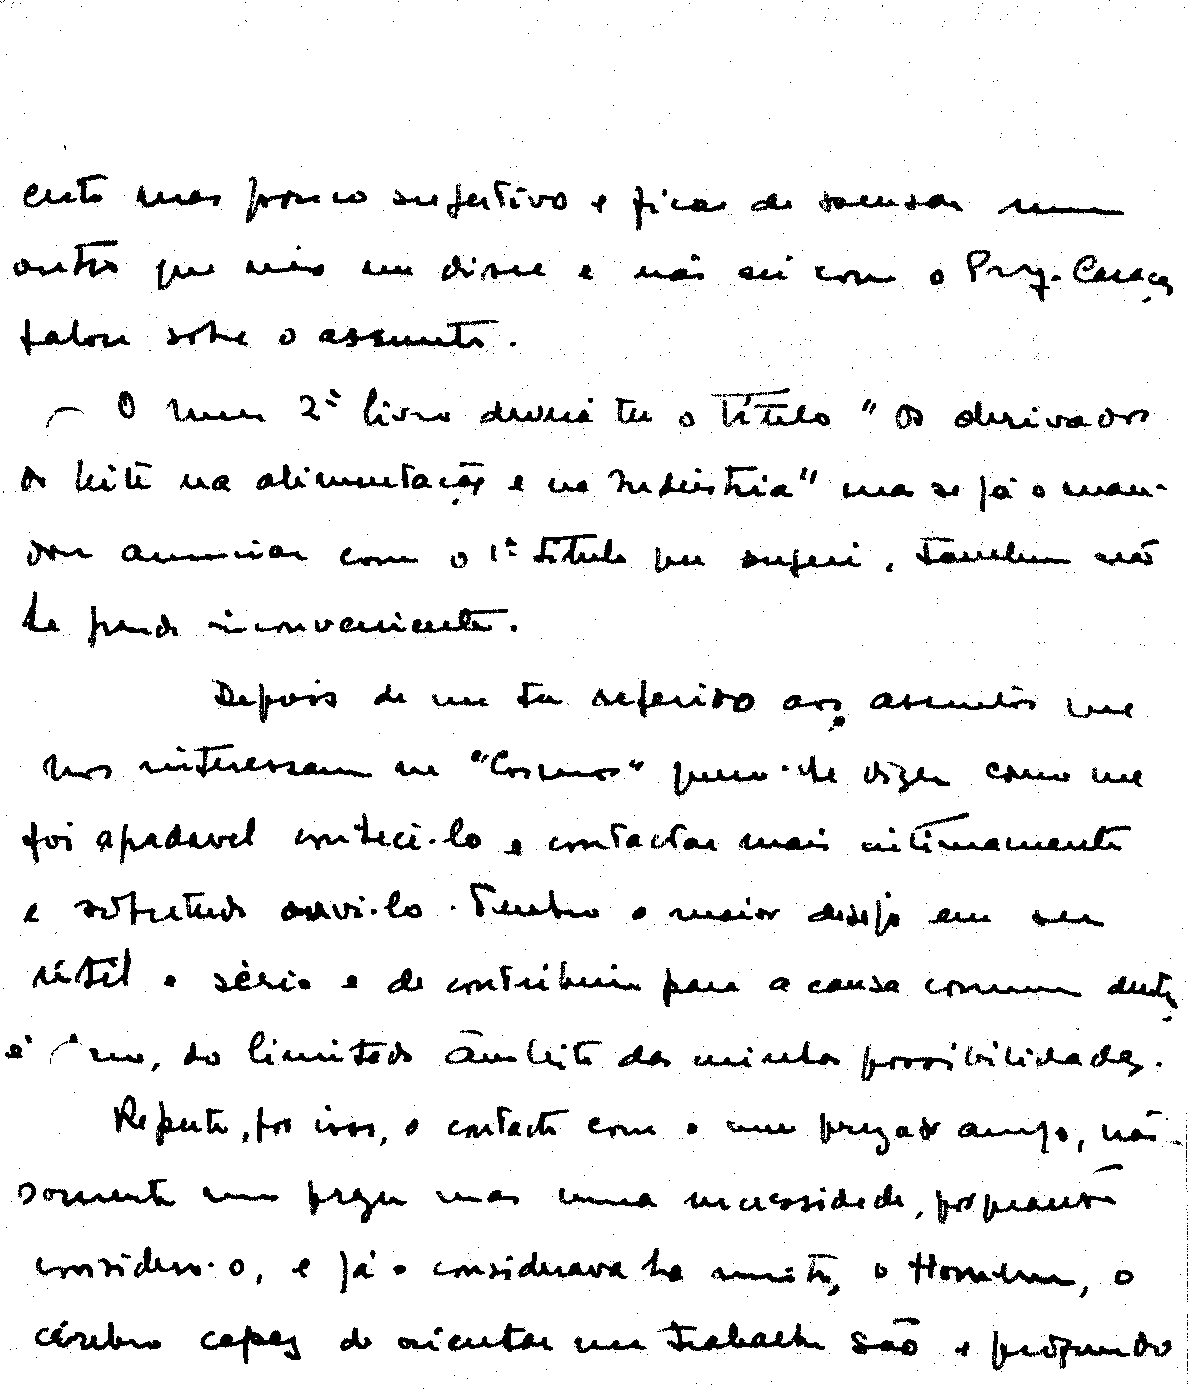 certo mas pouco sugestivo e ficar de pensar num
outro que não me disse e não sei como o Prof. Caraça
falou sobre o assunto.
— O meu 2º livro deverá ter o título "Os derivados
do leite na alimentação e na Indústria" mas se já o man-
dou anunciar com o 1º título que sugeri, também não
há grande inconveniente.
Depois de me ter referido aos assuntos que
nos interessam na "Cosmos" quero-lhe dizer como me
foi agradável conhecê-lo e contactar mais intimamente
e sobretudo ouvi-lo. Tenho o maior desejo em ser
útil e sério e de contribuir para a causa comum dentro,
é, do limitado âmbito das minhas possibilidades.
Reputo, por isso, o contacto com o meu prezado amigo, não
somente um prazer mas uma necessidade, porquanto
considero-o, e já o considerava há muito, o Homem, o
cérebro capaz de orientar um trabalho são e profundo